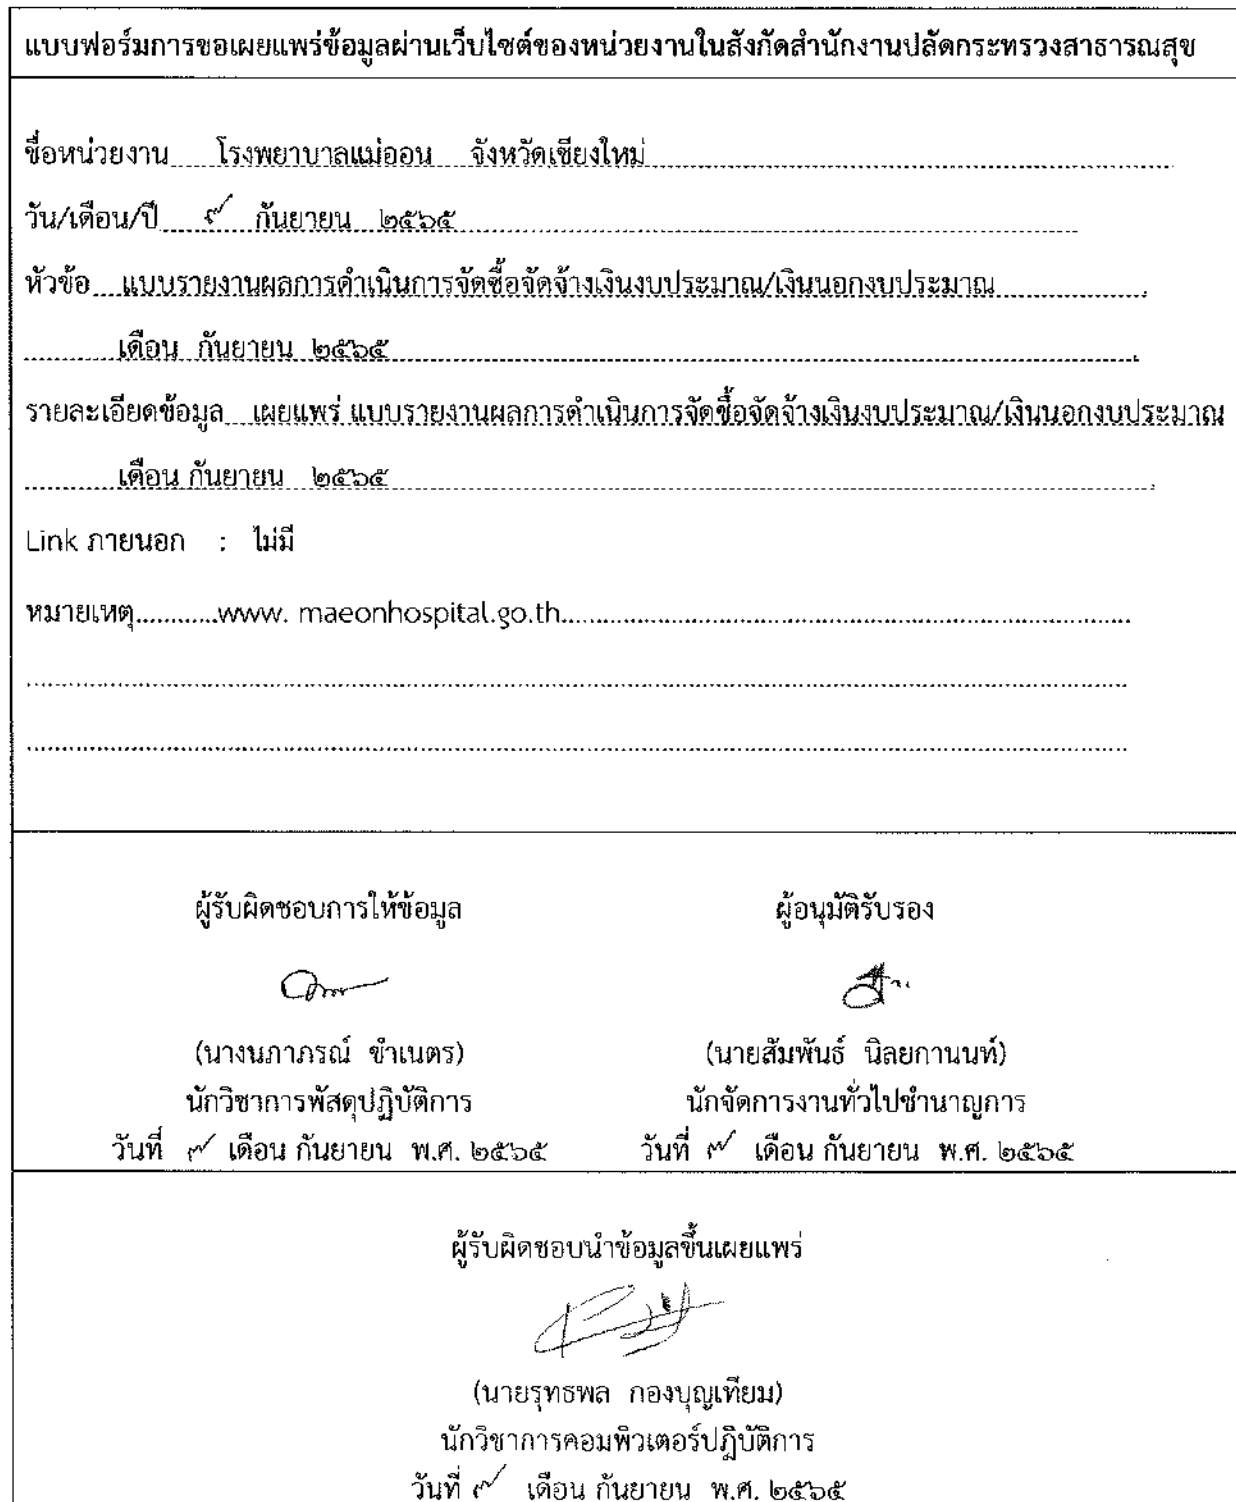 แบบฟอร์มการขอเผยแพร่ข้อมูลผ่านเว็บไซต์ของหน่วยงานในสังกัดสำนักงานปลัดกระทรวงสาธารณสุข
ชื่อหน่วยงาน โรงพยาบาลแม่ออน จังหวัดเชียงใหม่
วัน/เดือน/ปี ๙ กันยายน ๒๕๖๕
หัวข้อ แบบรายงานผลการดำเนินการจัดซื้อจัดจ้างเงินงบประมาณ/เงินนอกงบประมาณ
เดือน กันยายน ๒๕๖๕
รายละเอียดข้อมูล เผยแพร่ แบบรายงานผลการดำเนินการจัดซื้อจัดจ้างเงินงบประมาณ/เงินนอกงบประมาณ
เดือน กันยายน ๒๕๖๕
Link ภายนอก : ไม่มี
หมายเหตุ............www. maeonhospital.go.th
ผู้รับผิดชอบการให้ข้อมูล ผู้อนุมัติรับรอง
(นางนภาภรณ์ ขำเนตร) (นายสัมพันธ์ นิลยกานนท์)
นักวิชาการพัสดุปฏิบัติการ นักจัดการงานทั่วไปชำนาญการ
วันที่ ๙ เดือน กันยายน พ.ศ. ๒๕๖๕ วันที่ ๙ เดือน กันยายน พ.ศ. ๒๕๖๕
ผู้รับผิดชอบนำข้อมูลขึ้นเผยแพร่
(นายรุทธพล กองบุญเทียม)
นักวิชาการคอมพิวเตอร์ปฏิบัติการ
วันที่ ๙ เดือน กันยายน พ.ศ. ๒๕๖๕